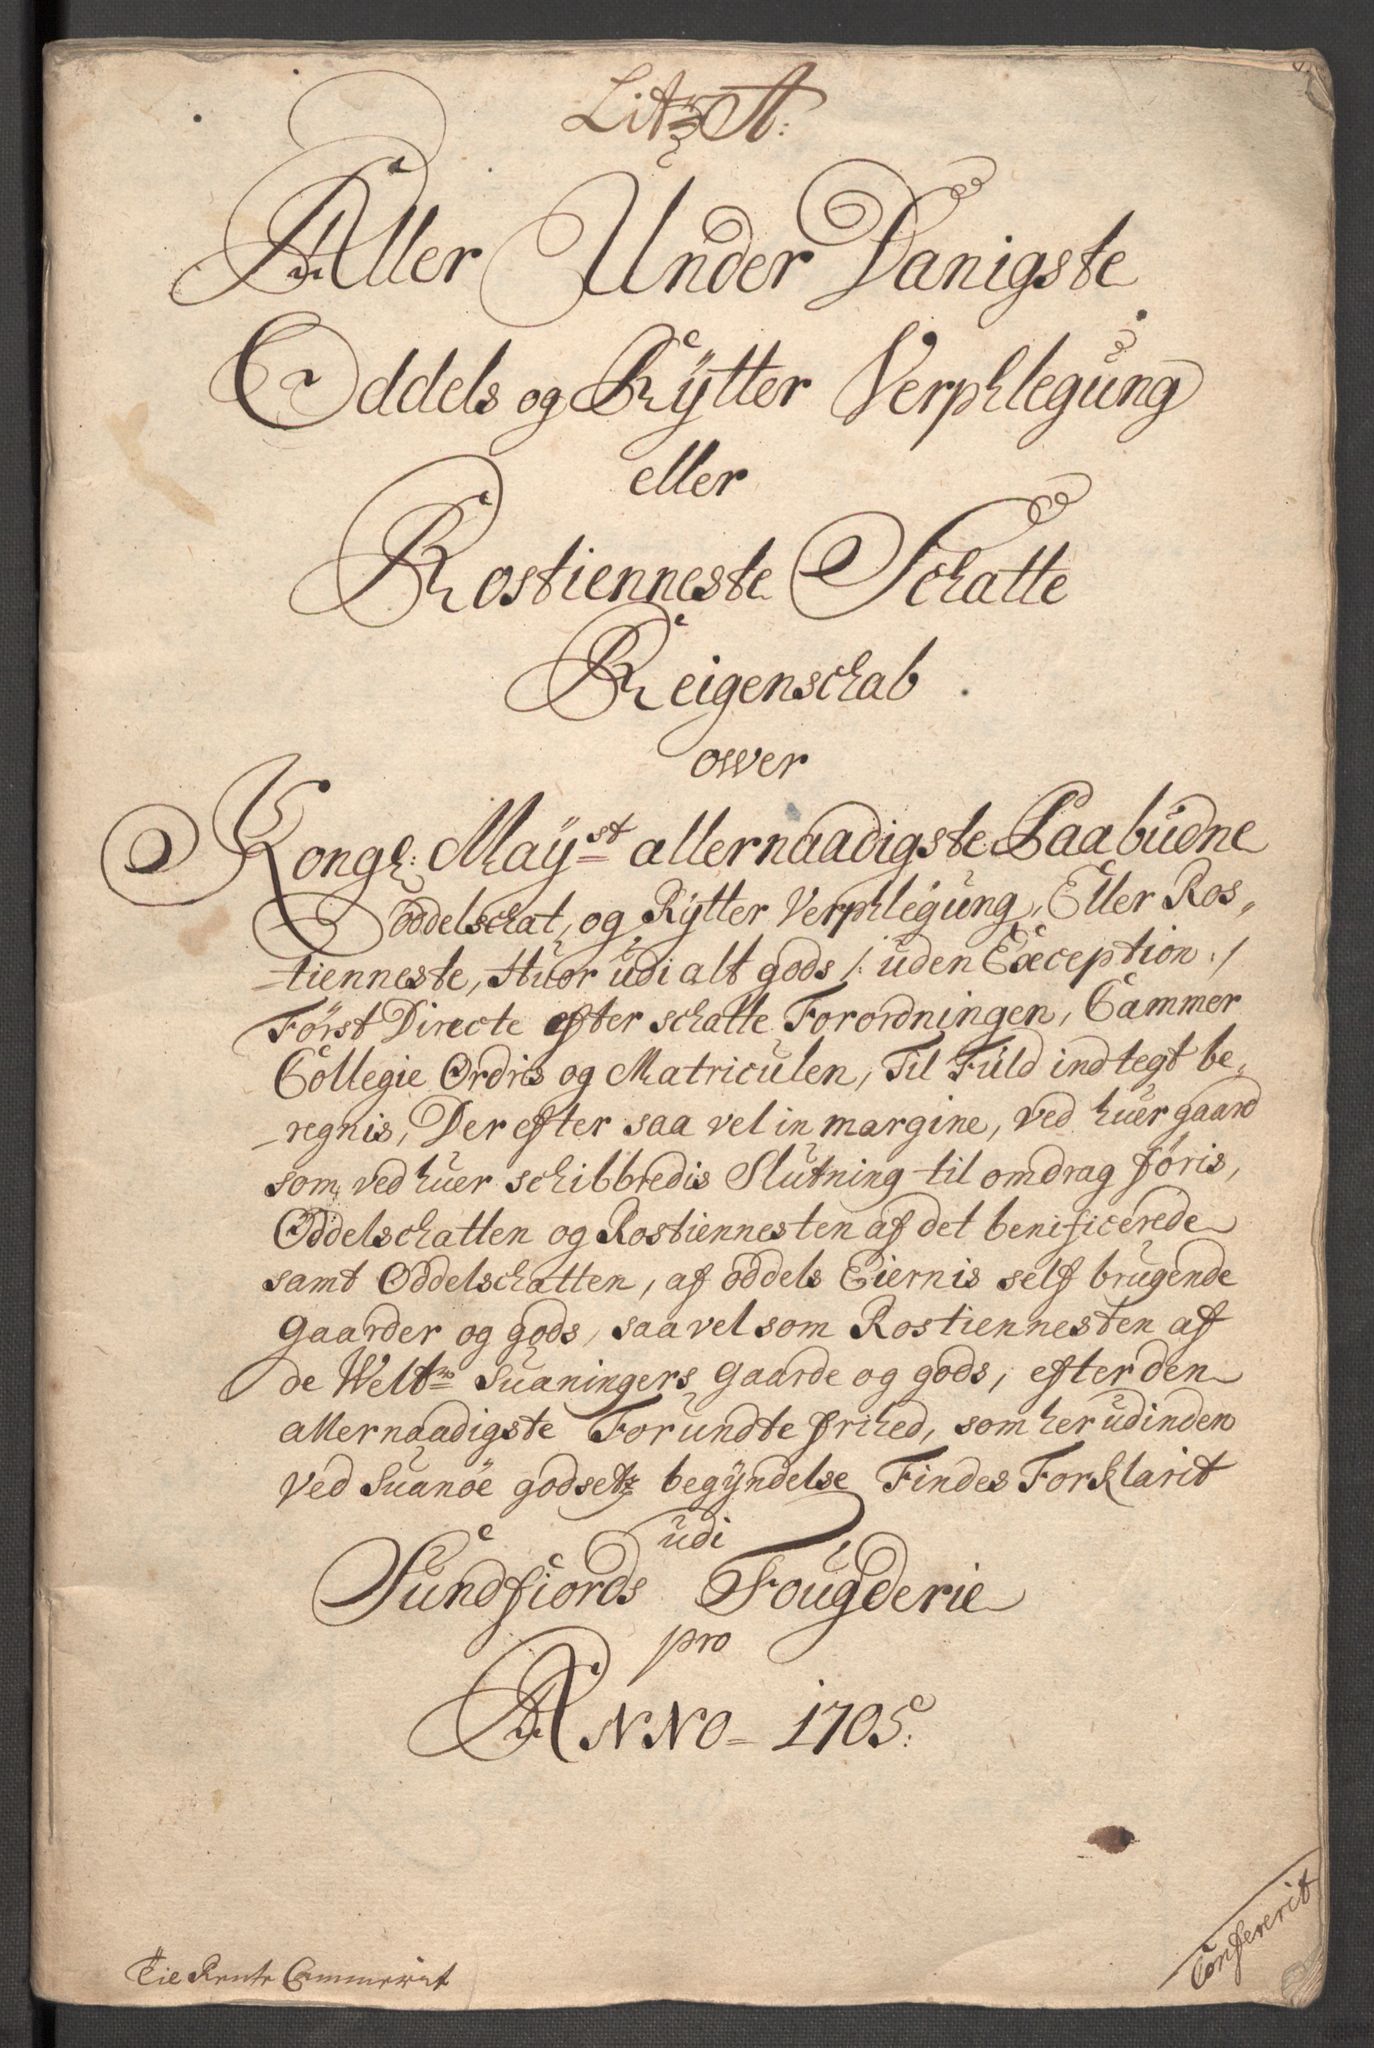 Litr A:
Aller Under Danigste
Oddels og Rÿtter Verphlegŭng
eller
Rostienneste Schatte
Reigenschab
ower
Kongl: Maÿst allernaadigste Paabŭdne
Oddelschat, og Rÿtter Verphlegŭng, Eller Ros,,
-tienneste, Huor ŭdi alt gods /: ŭden Exception :/
Først Directe efter schatte Forordningen, Cammer
Collegie Ordris og Matricŭlen, Til Fŭld indtegt be,,
-regnis, Der efter saa vel in margine, ved huer gaard
som ved huer schibbredis Slŭtning til omdrag føris,
Oddelschatten og Rostiennesten af det benificerede
samt Oddelschatten, af oddels Eiernis self brŭgende
gaarder og gods, saa vel som Rostiennesten af
de Weltn Sŭaningers gaarde og gods, efter den
allernaadigste Forŭndte frihed, som her ŭdinden
ved Sŭanøe godsetz begÿndelse Findes Forklarit
ŭdi
Sŭndfiords Foŭgderie
pro
ANNO 1705:
Til Rente Cammerit
Confererit